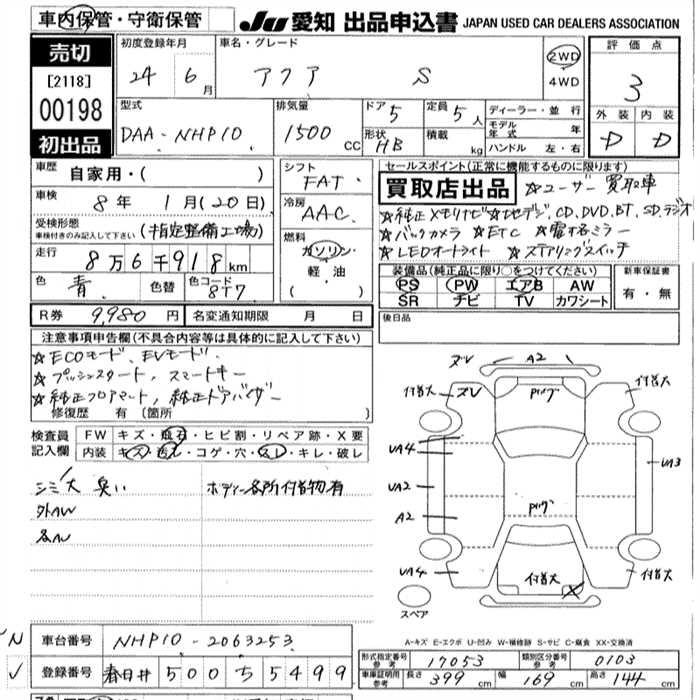 車内保管・守衛保管
JU 愛知 出品申込書 JAPAN USED CAR DEALERS ASSOCIATION
売切
[2118]
00198
初出品
初度登録年月
24 6月
車名・グレード
アクア S
2WD
4WD
評価点
3
外装 内装
D D
型式
DAA-NHP10
排気量
1500 CC
ドア 5
形状 HB
定員 5人
積載 kg
ディーラー・並行
モデル年式 年
ハンドル 左・右
車歴
自家用・( )
車検
8年 1月(20日)
受検形態
車検付きのみ記入して下さい (指定整備工場)
走行
8万6千918km
色 青 色替 色コード 8T7
シフト
FAT
冷房
AAC
燃料
ガソリン・
軽・油
( )
セールスポイント(正常に機能するものに限ります)
買取店出品 ☆ユーザー買取車
☆純正メモリナビ☆地デジ,CD,DVD,BT,SD,ラジオ
☆バックカメラ ☆ETC ☆電格ミラー
☆LEDオートライト ☆ステアリングスイッチ
装備品(純正品に限り○をつけてください)
PS PW エアB AW
SR ナビ TV カワシート
新車保証書
有・無
R券 9,980円 名変通知期限 月 日
後日品
注意事項申告欄(不具合内容等は具体的に記入して下さい)
☆ECOモード、EVモード、
☆プッシュスタート、スマートキー
☆純正フロアマット、純正ドアバイザー
修復歴 有 〔箇所 〕
検査員記入欄
FW キズ・飛石・ヒビ割・リペア跡・X要
内装 キズ・汚レ・コゲ・穴・スレ・キレ・破レ
シミ大 臭い ボディー各所付着物有
外AW
ズV A2
付着大 ズV Pハゲ 付着大
UA4 UA3
UA2
A2 Pハゲ
UA4 付着大 X 付着大
スペア
A-キズ E-エクボ U-凹み W-補修跡 S-サビ C-腐食 XX-交換済
車台番号 NHP10-2063253
登録番号 春日井 500 ち 5499
形式指定番号 参考 17053 類別区分番号 参考 0103
車庫証明用 参考 長さ 399cm 幅 169cm 高さ 144cm